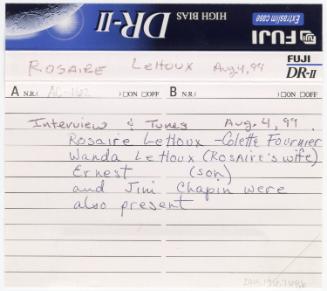 Extraslim case
FUJI
HIGH BIAS
DR-II
ROSAIRE LeHoux Aug. 4, 99
FUJI
DR-II
A N.R./ AC-162 ON OFF B N.R./ ON OFF
Interview & Tunes Aug. 4, 99.
Rosaire LeHoux - Colette Fournier
Wanda LeHoux (Rosaire's wife)
Ernest (son)
and Jim Chapin were
also present